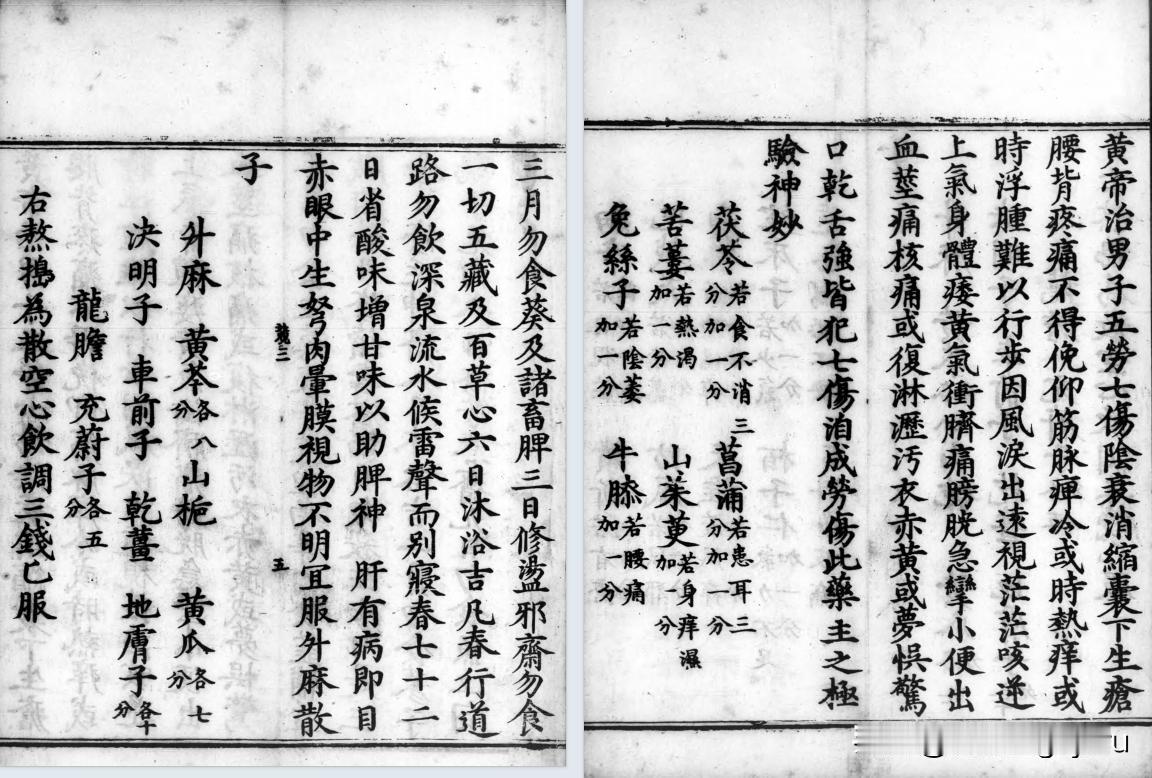 黃帝治男子五勞七傷陰衰消縮囊下生瘡
腰背疼痛不得俛仰筋脉痺冷或時熱痒或
時浮腫難以行步因風淚出遠視茫茫咳逆
上氣身體痿黃氣衝臍痛膀胱急攣小便出
血莖痛核痛或復淋瀝污衣赤黃或夢悞驚
口乾舌強皆犯七傷洎成勞傷此藥主之極
驗神妙
茯苓若食不消三分加一分 菖蒲若患耳三分加一分
苦蔞若熱渴加一分 山茱萸若身痒濕加一分
兔絲子若陰萎加一分 牛膝若腰痛加一分
三月勿食葵及諸畜脾三日修盪邪齋勿食
一切五藏及百草心六日沐浴吉凡春行道
路勿飲深泉流水候雷聲而別寢春七十二
日省酸味增甘味以助脾神 肝有病即目
赤眼中生努肉暈膜視物不明冝服升麻散
子 號三 五
升麻 黃芩各八分 山梔 黃瓜各七分
決明子 車前子 乾薑 地膚子各十分
龍膽 充蔚子各五分
右熬搗為散空心飲調三錢匕服